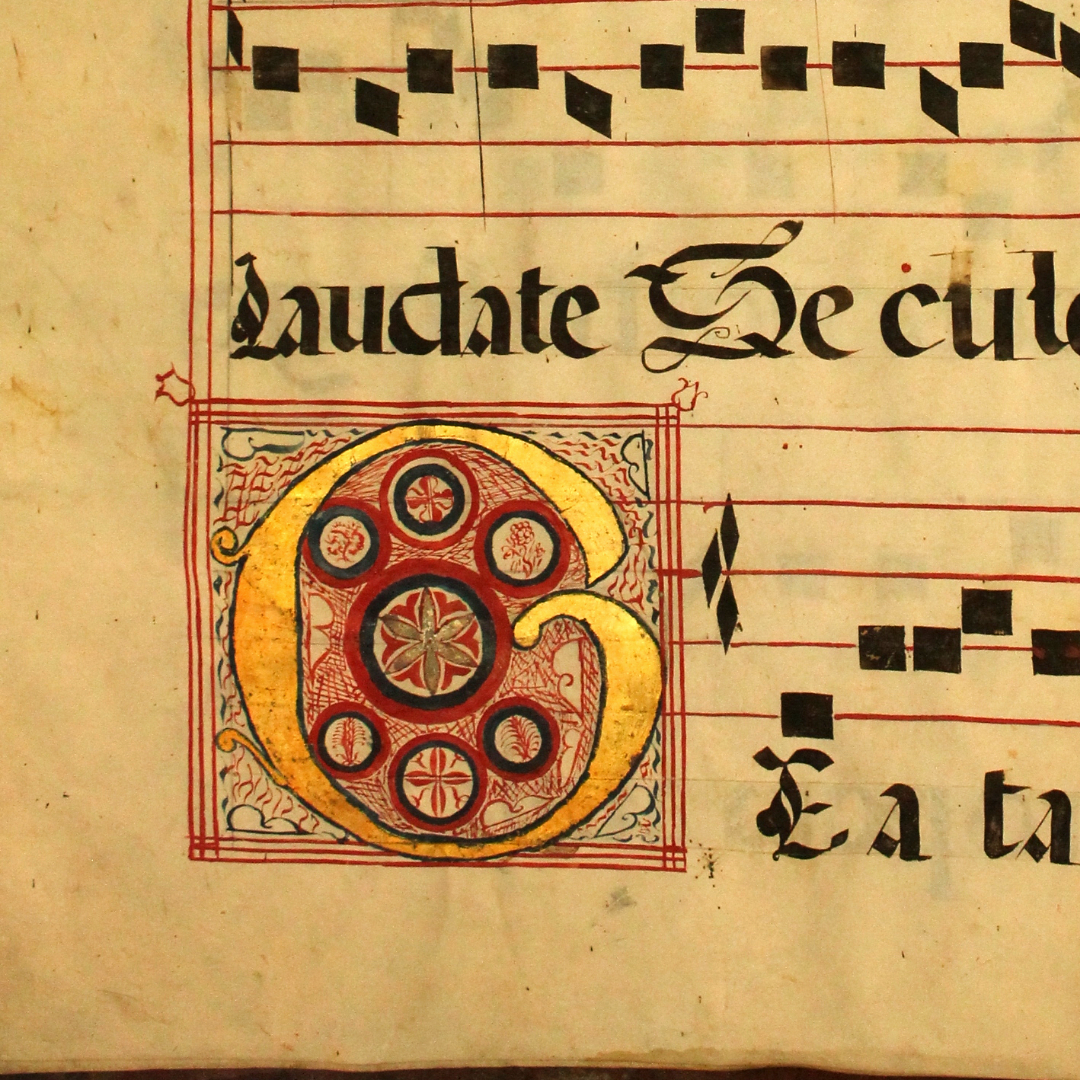 laudate Se cul
G Ea ta